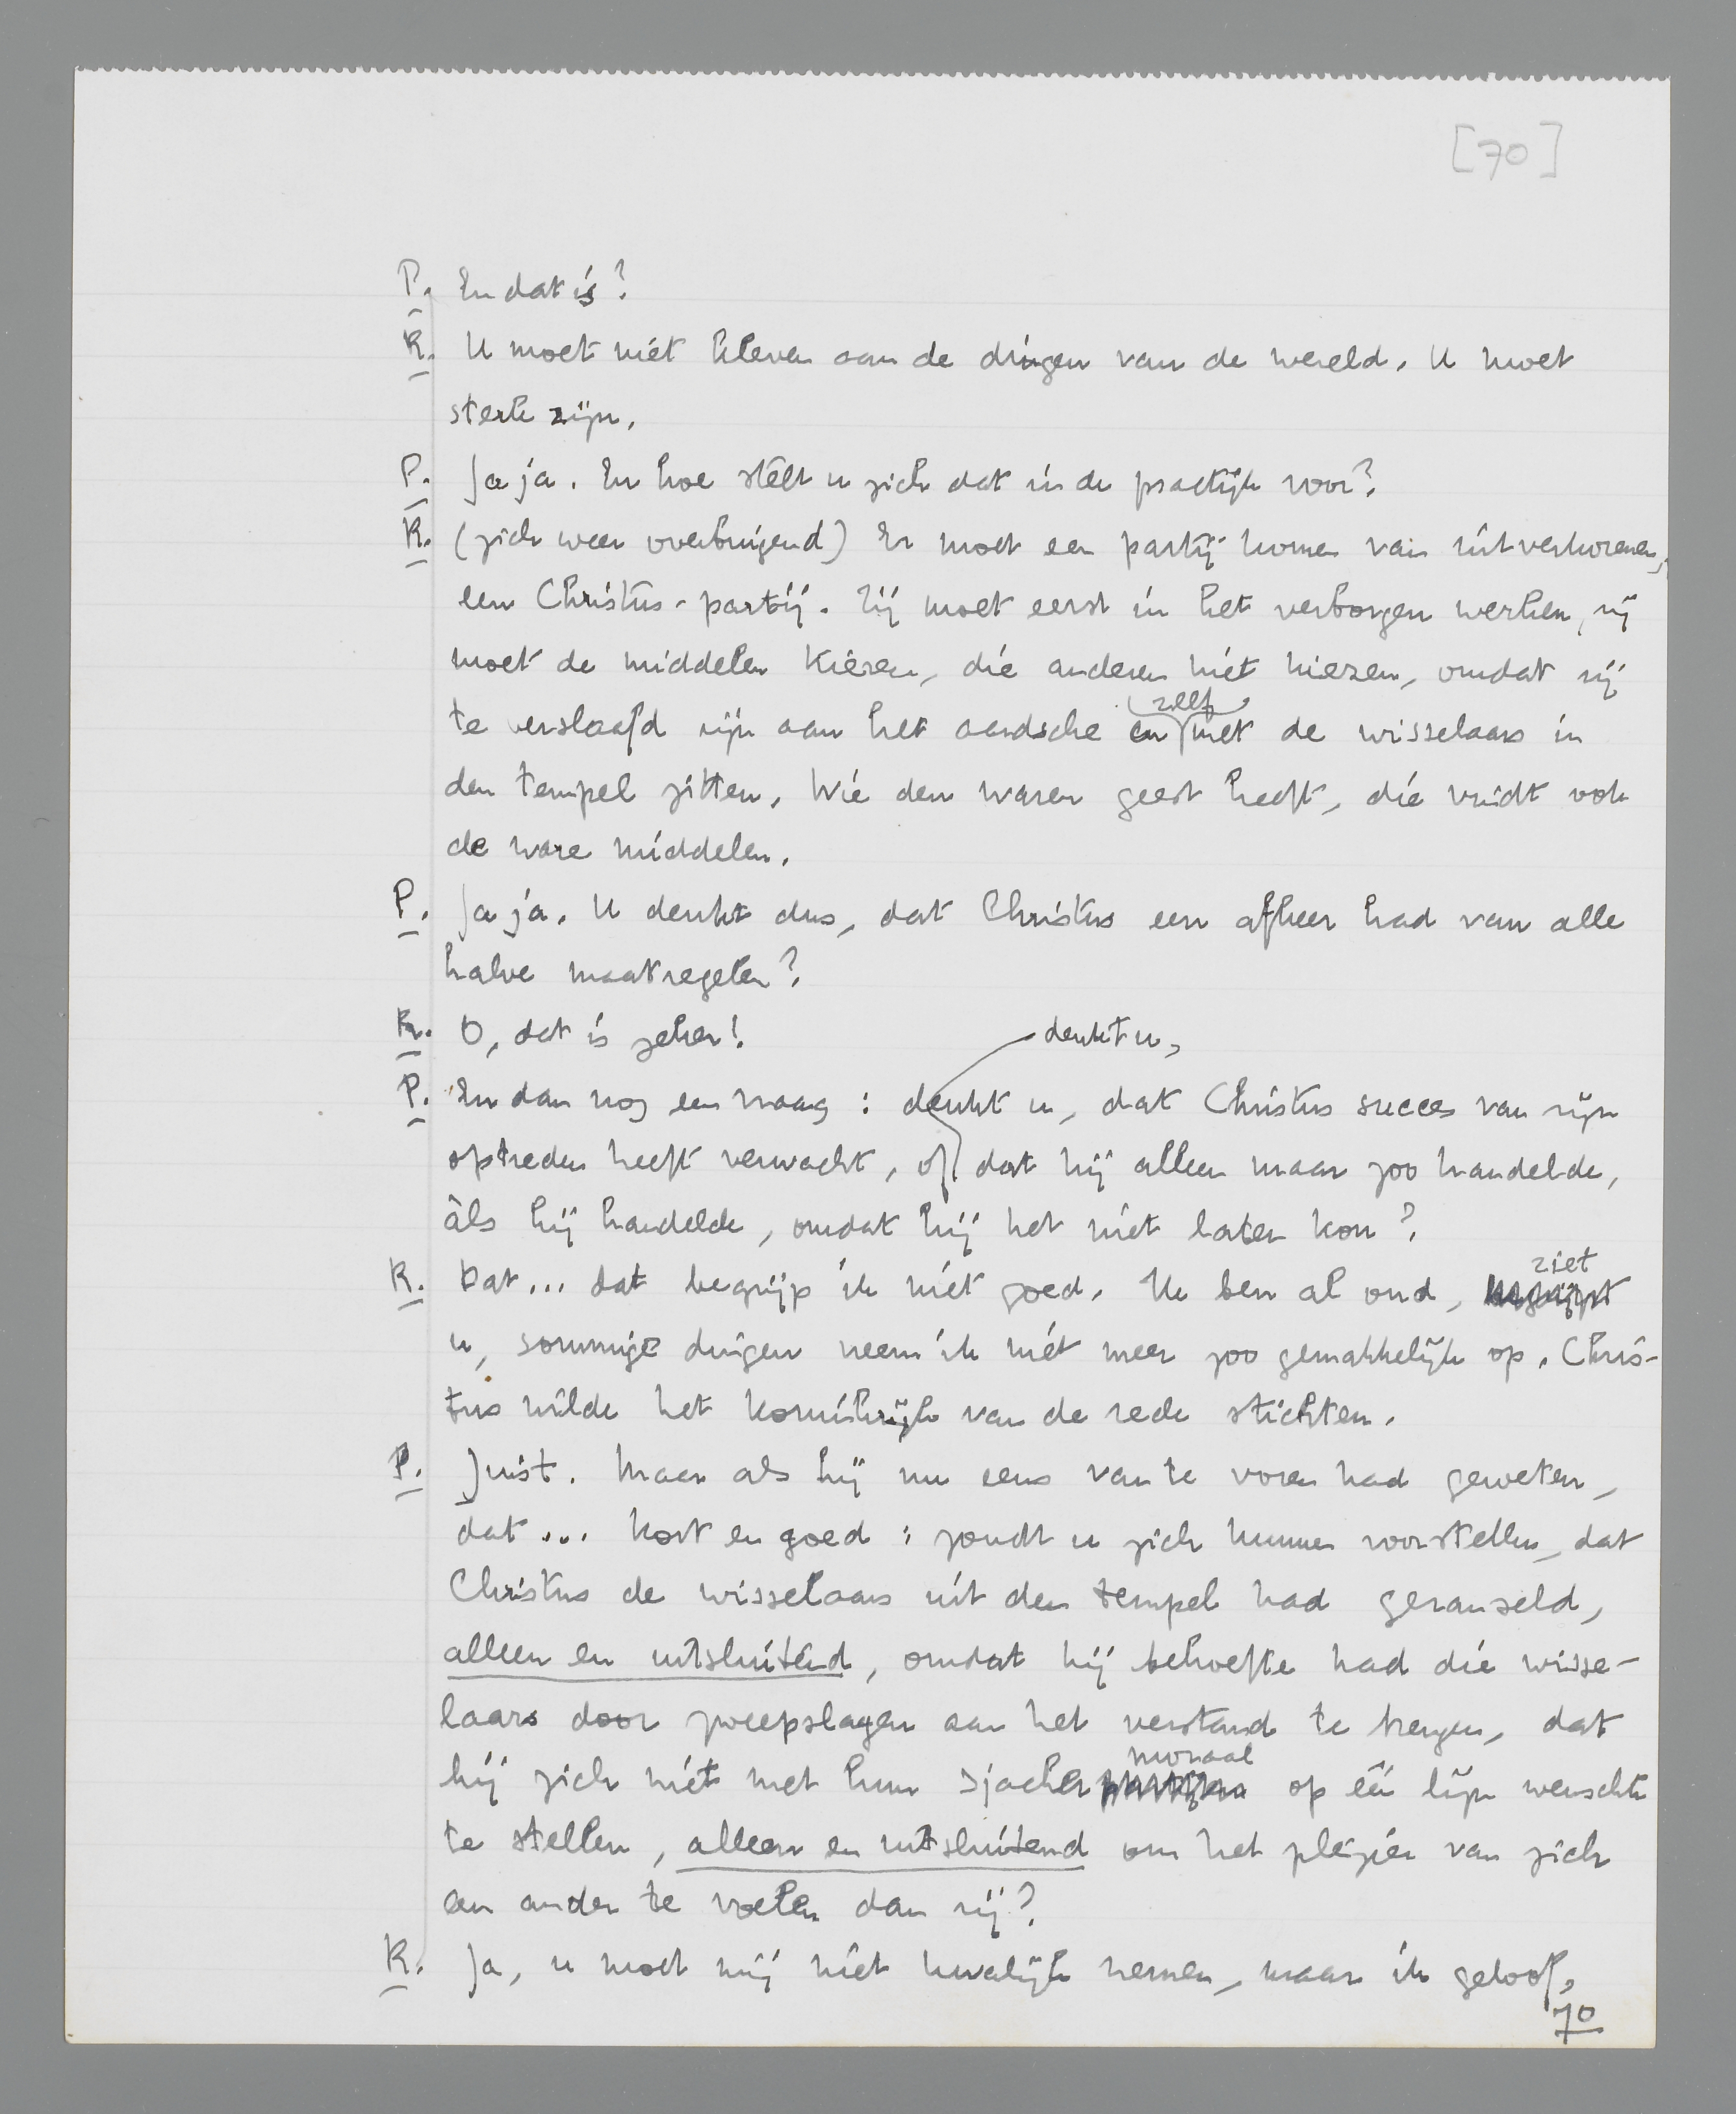 [70]
P. En dat is?
K. U moet niet kleven aan de dingen van de wereld. U moet
sterk zijn.
P. Ja ja. En hoe stelt u zich dat in de practijk voor?
K. (zich weer overbuigend) Er moet een partij komen van uitverkorenen,
een Christus-partij. Zij moet eerst in het verborgen werken, zij
moet de middelen kiezen, die anderen niet kiezen, omdat zij
zelf
te verslaafd zijn aan het aardsche en met de wisselaars in
den tempel zitten. Wie den waren geest heeft, die vindt ook
de ware middelen.
P. Ja ja. U denkt dus, dat Christus een afkeer had van alle
halve maatregelen?
K. O, dat is zeker!
denkt u,
P. En dan nog een vraag: denkt u, dat Christus succes van zijn
optreden heeft verwacht, of dat hij alleen maar zoo handelde,
àls hij handelde, omdat hij het niet laten kon?
K. Dat... dat begrijp ik niet goed. Ik ben al oud, begrijpt
ziet
u, sommige dingen neem ik niet meer zoo gemakkelijk op. Chris-
tus wilde het koninkrijk van de rede stichten.
P. Juist. Maar als hij nu eens van te voren had geweten,
dat... kort en goed: zoudt u zich kunnen voorstellen, dat
Christus de wisselaars uit den tempel had geranseld,
alleen en uitsluitend, omdat hij behoefte had die wisse-
laars door zweepslagen aan het verstand te brengen, dat
moraal
hij zich niet met hun sjacher op één lijn wenschte
te stellen, alleen en uitsluitend om het plezier van zich
een ander te voelen dan zij?
K. Ja, u moet mij niet kwalijk nemen, maar ik geloof,
70